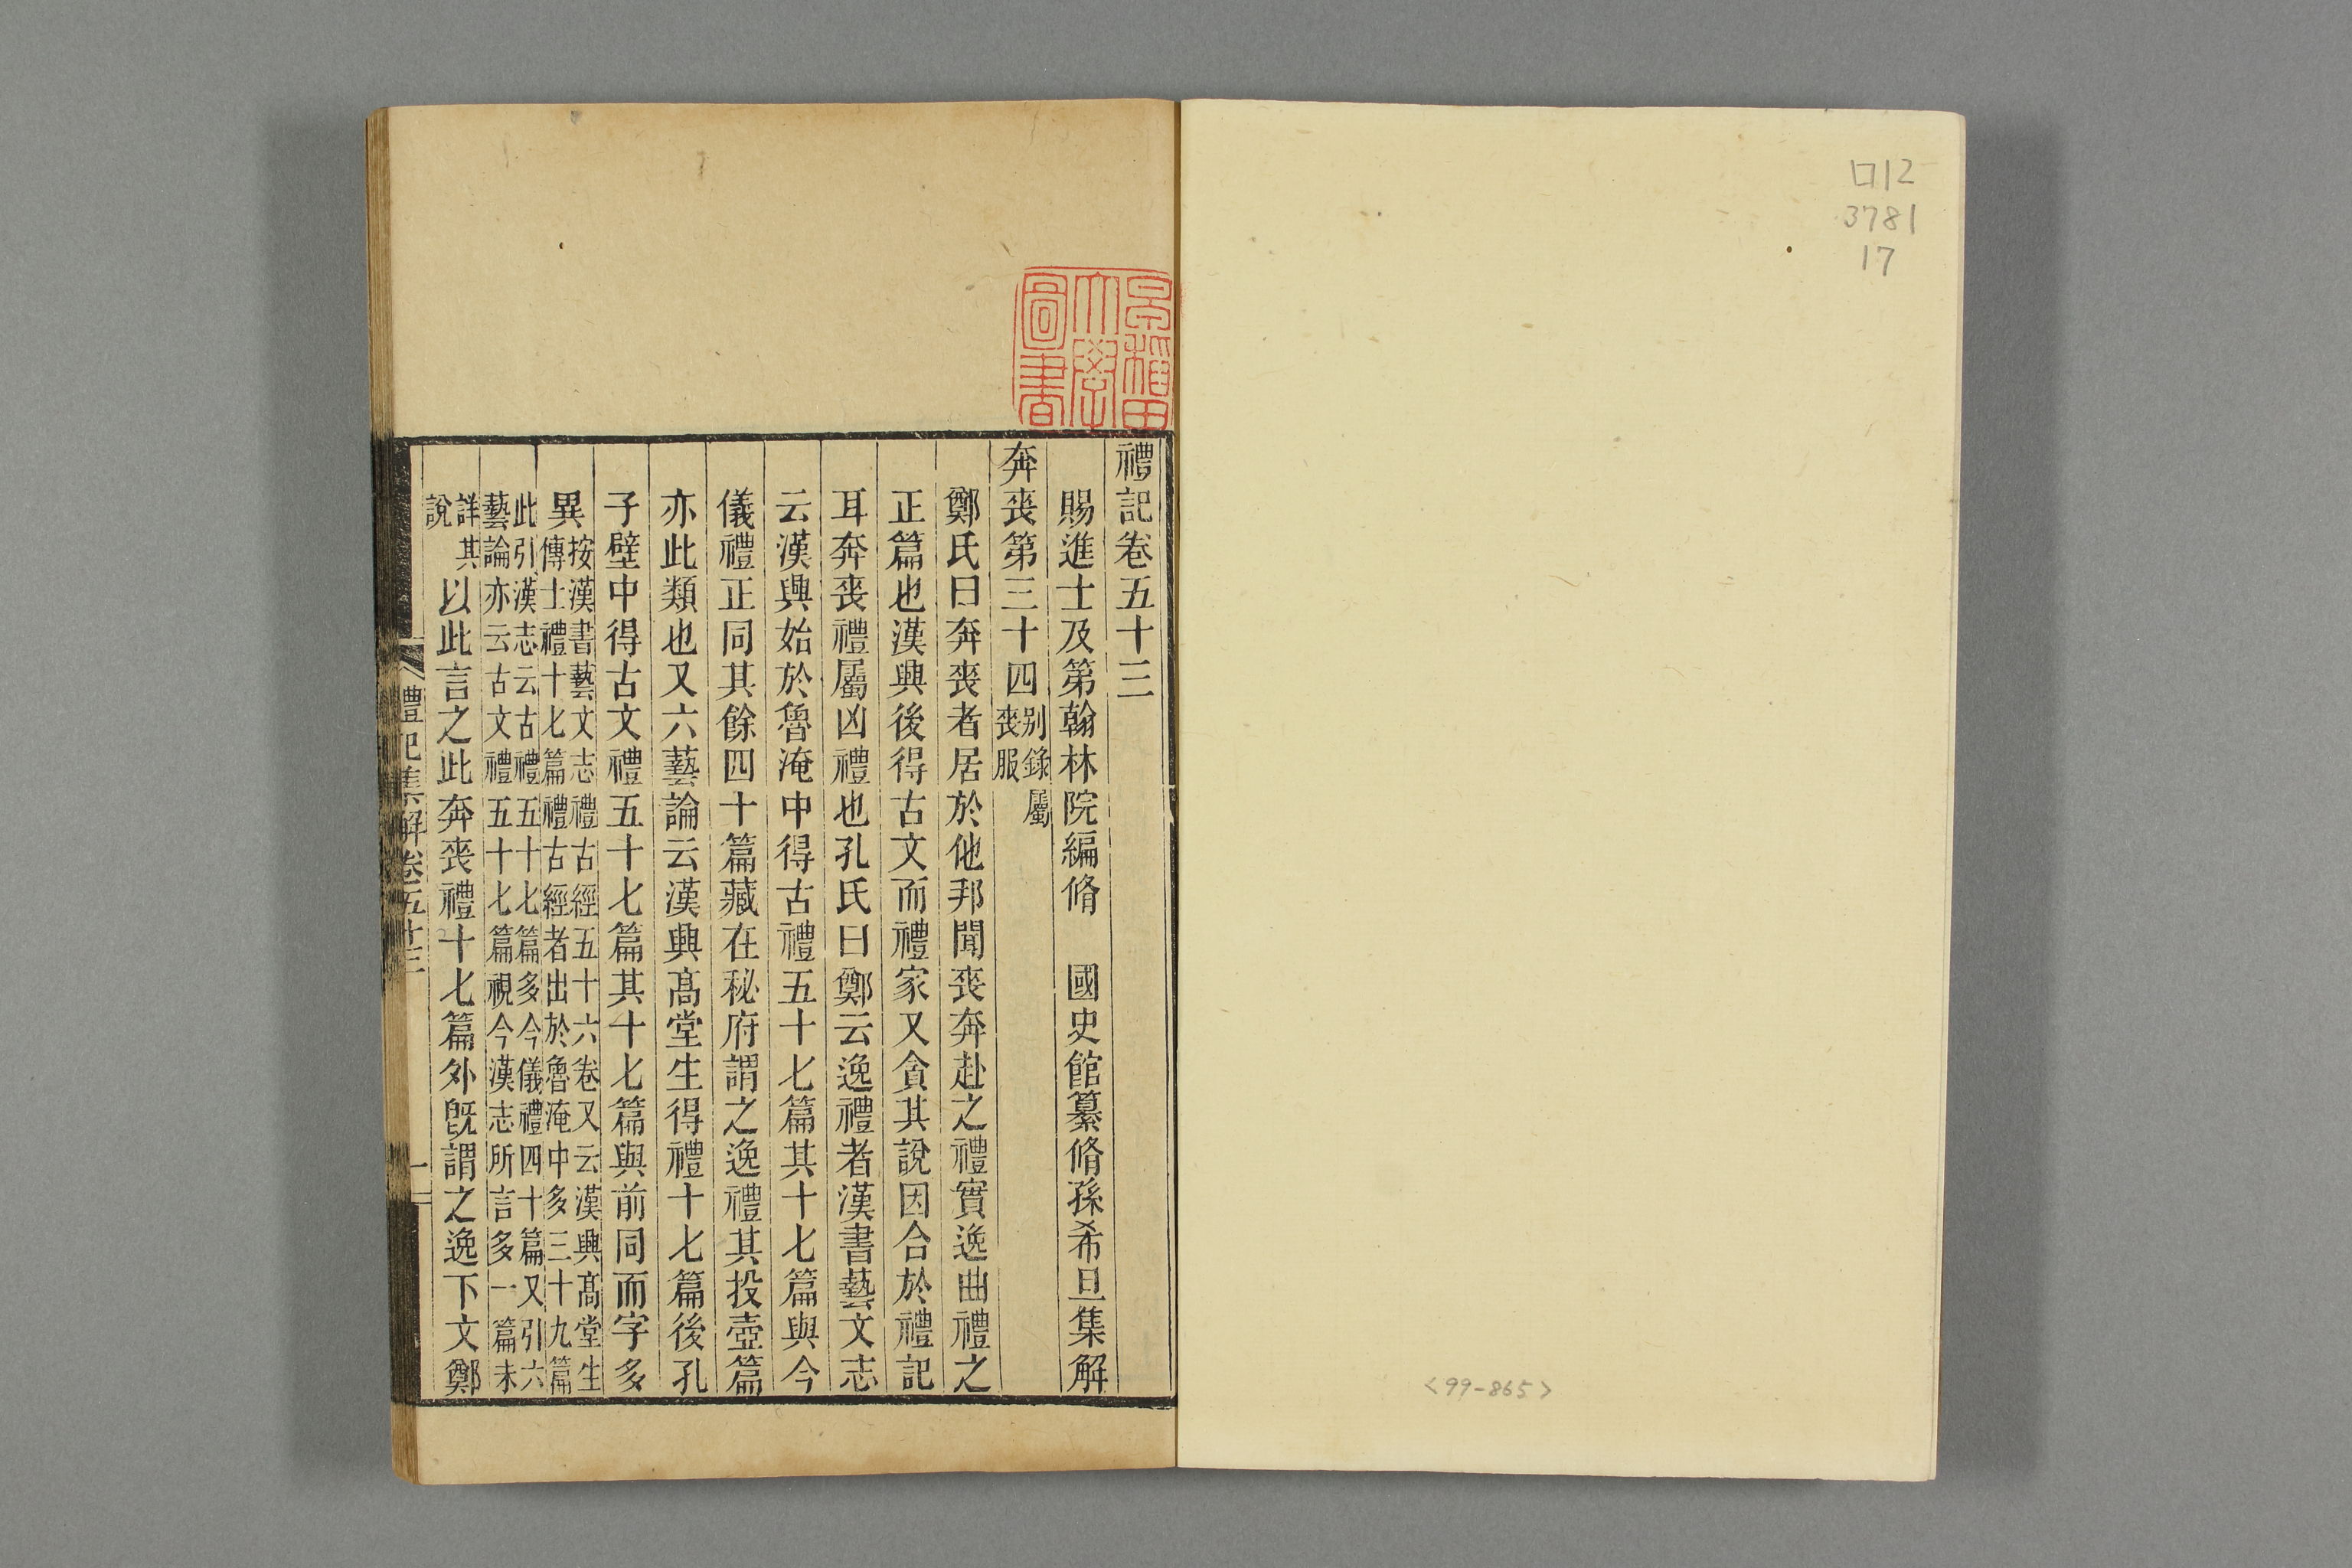 口12
3781
17
<99-865>
早稲田
大學
圖書
禮記卷五十三
賜進士及第翰林院編脩　國史館纂脩孫希旦集解
奔喪第三十四别錄屬喪服
鄭氏曰奔喪者居於他邦聞喪奔赴之禮實逸曲禮之
正篇也漢興後得古文而禮家又貪其說因合於禮記
耳奔喪禮屬凶禮也孔氏曰鄭云逸禮者漢書藝文志
云漢興始於魯淹中得古禮五十七篇其十七篇與今
儀禮正同其餘四十篇藏在秘府謂之逸禮其投壺篇
亦此類也又六藝論云漢興高堂生得禮十七篇後孔
子壁中得古文禮五十七篇其十七篇與前同而字多
異按漢書藝文志禮古經五十六卷又云漢興高堂生
傳士禮十七篇禮古經者出於魯淹中多三十九篇
此引漢志云古禮五十七篇多今儀禮四十篇又引六
藝論亦云古文禮五十七篇視今漢志所言多一篇未
詳其說以此言之此奔喪禮十七篇外旣謂之逸下文鄭
禮記集解卷五十三
一